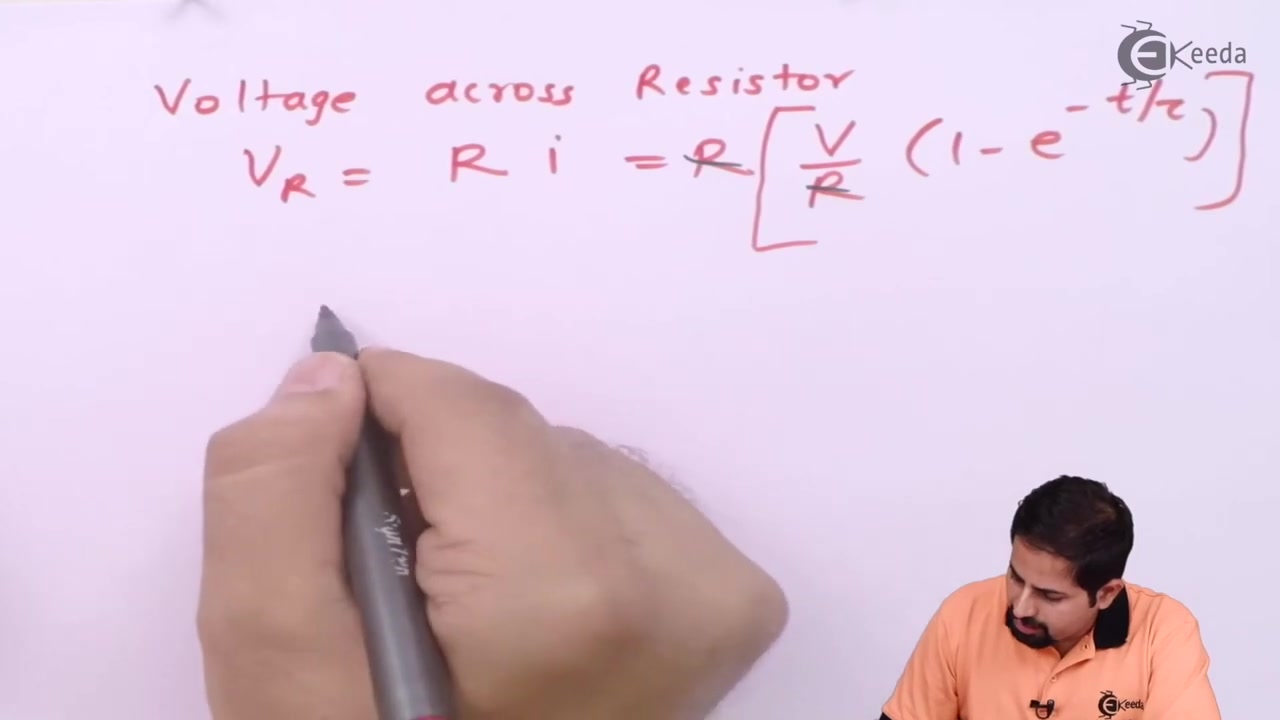 EKeeda
Voltage across Resistor
V_R = R i = R [ V/R (1 - e^{-t/τ}) ]
EKeeda